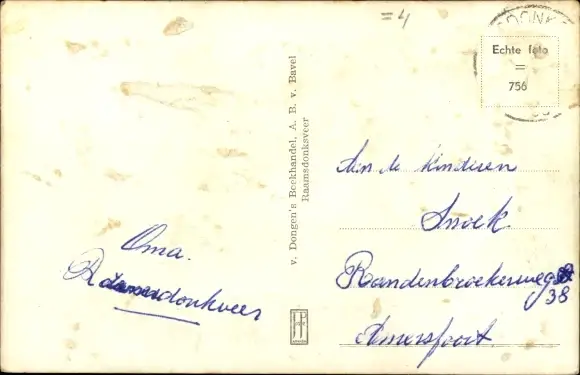 = 4
DONK
Echte foto
=
756
v. Dongen's Boekhandel, A. B. v. Bavel
Raamsdonksveer
Oma.
Raamsdonkveer
Aan de kinderen
Snoek
Randenbroekerweg
38
Amersfoort.